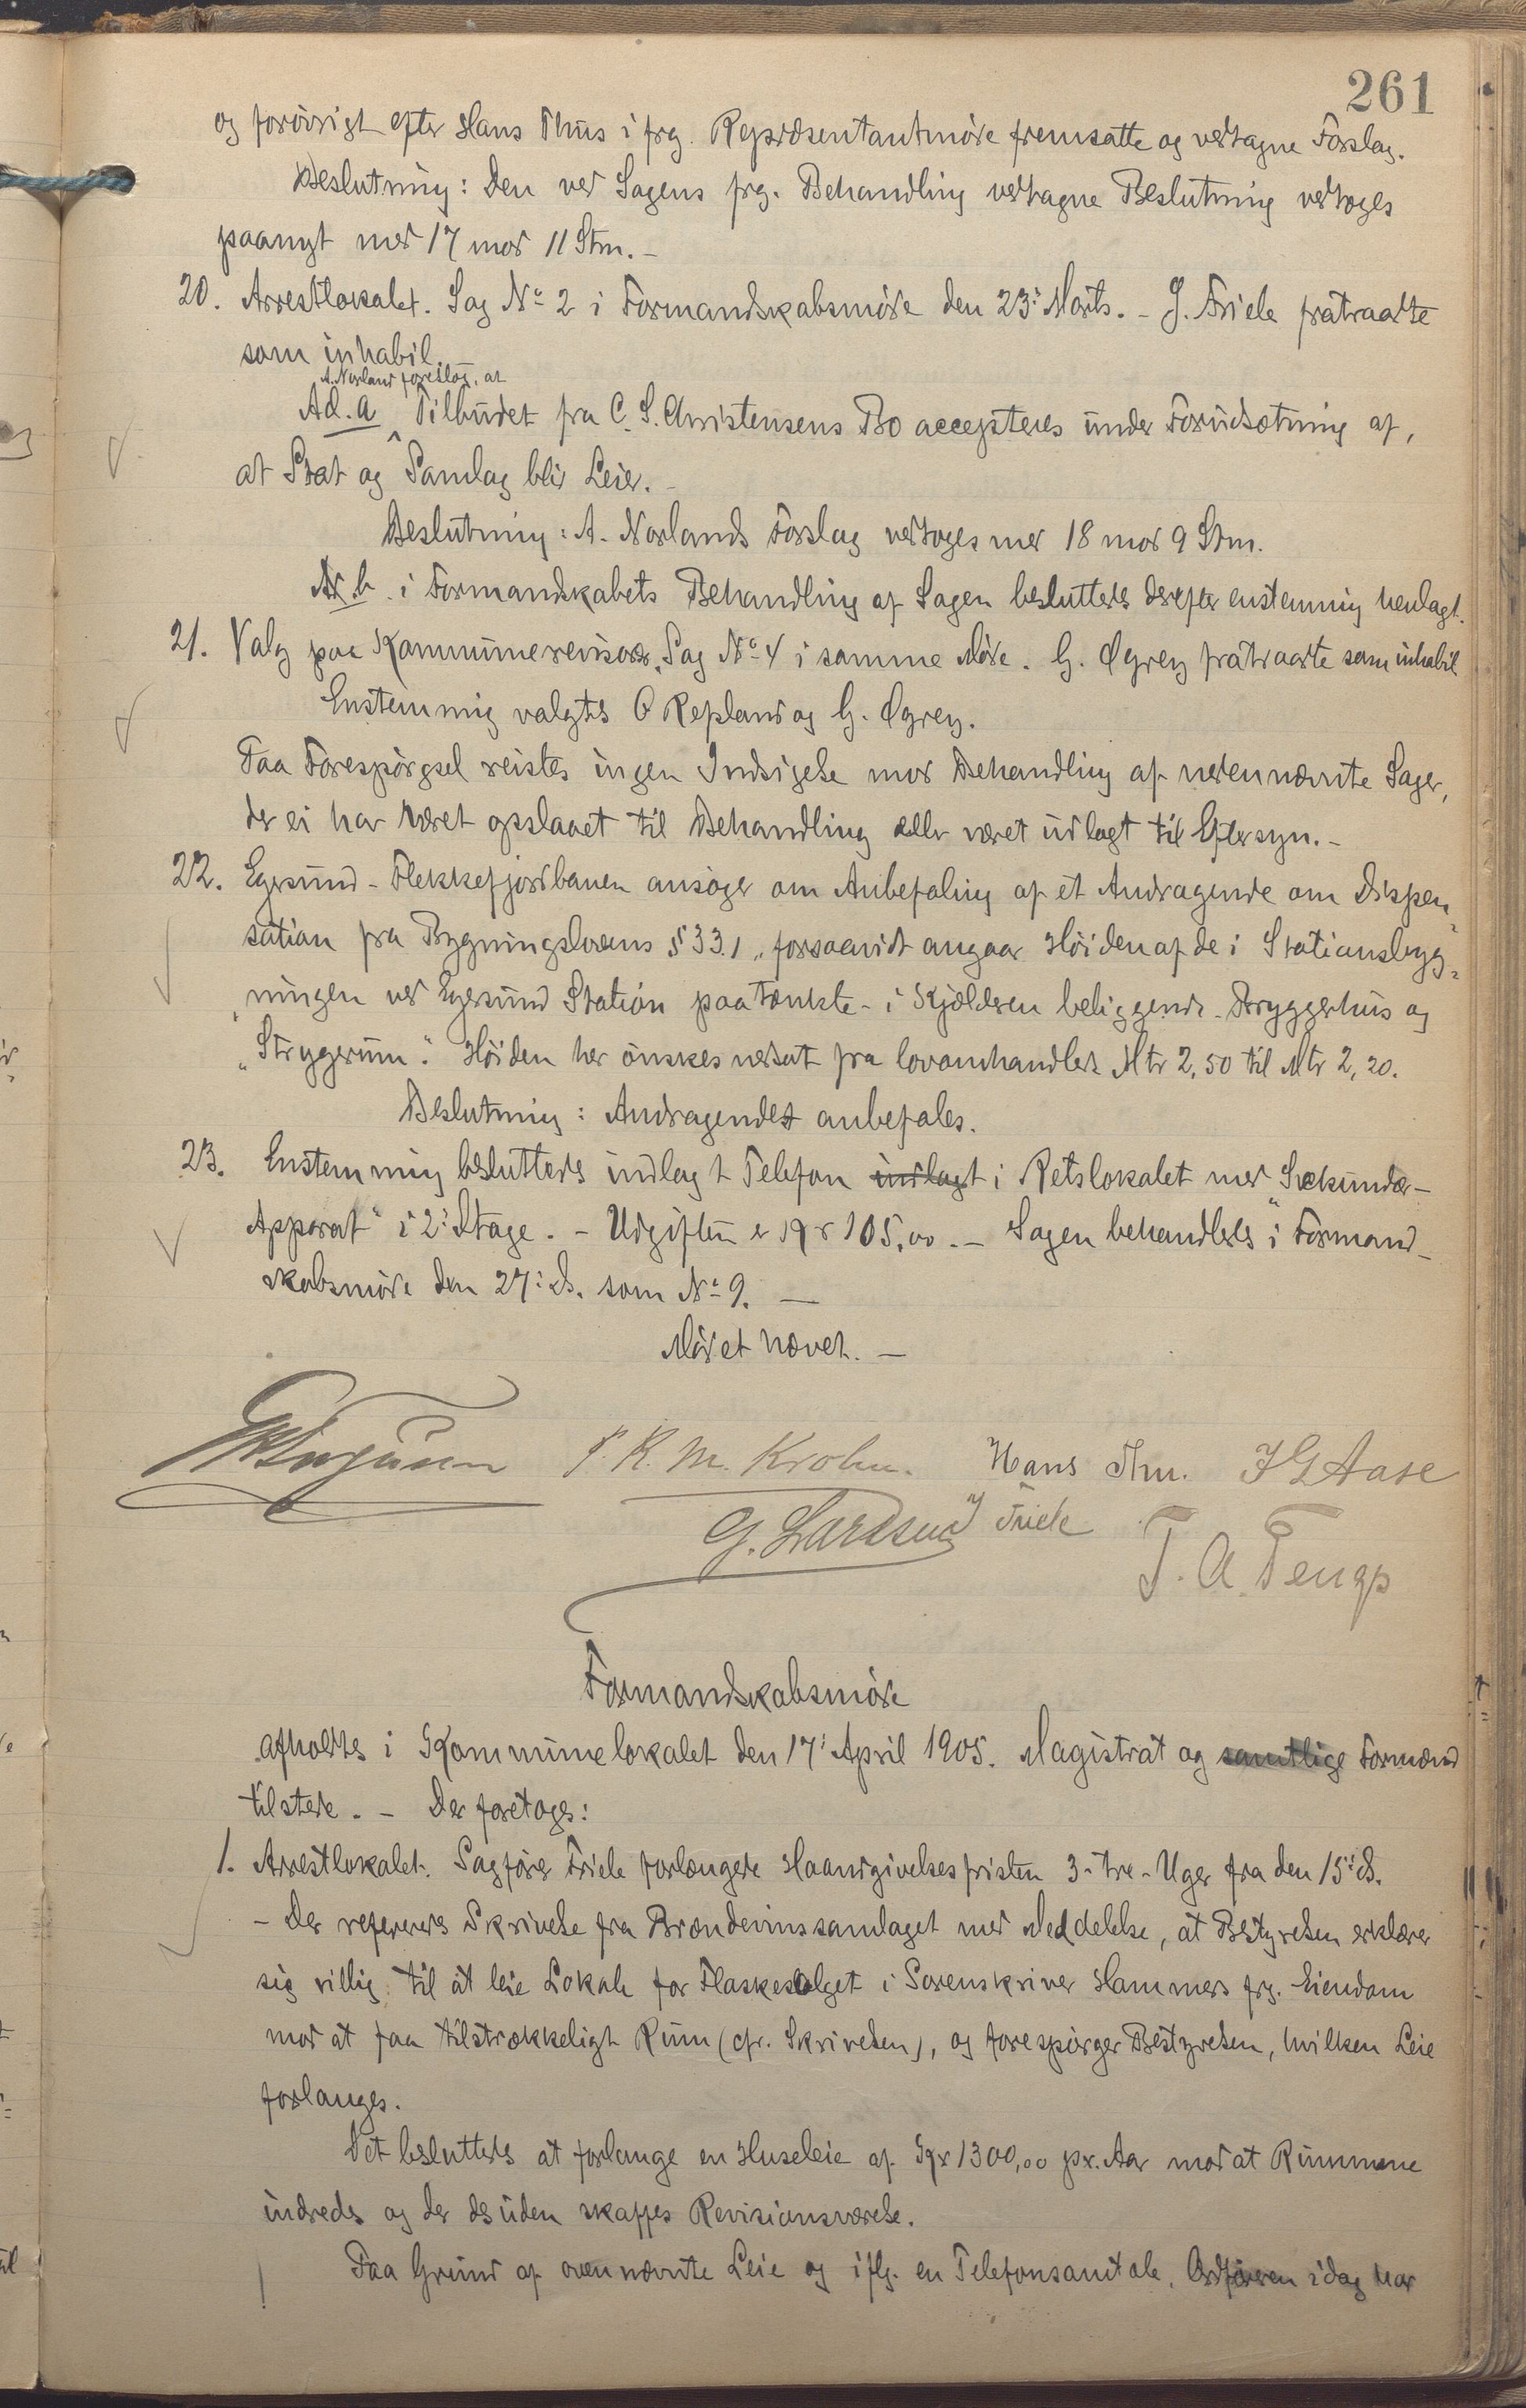 261
og forövrigt efter Hans Thus i frg. Repræsentantmöde fremsatte og vedtagne Forslag.
Beslutning: Den ved Sagens frg. Behandling vedtagne Beslutning vedtoges
paanyt med 17 mod 11 Stm. -
20. Arrestlokalet. Sag No 2 i Formandskabsmöde den 23: Marts. - J. Friele fratraadte
som inhabil. -
A. Norland foreslog, at
Ad. a Tilbudet fra C. S. Christensens Bo accepteres under Forudsætning af,
at Stat og Samlag blir Leier. -
Beslutning: A. Norlands Forslag vedtoges med 18 mod 9 Stm.
Ad. b. i Formandskabets Behandling af Sagen besluttedes derefter enstemmig henlagt.
21. Valg paa Kommunerevisorer. Sag No 4 i samme Möde. G. Øgrey fratraadte som inhabil
Enstemmig valgtes O Repland og G. Øgrey.
Paa Forespörgsel reistes ingen Indsigelse mod Behandling af nedennævnte Sager,
der ei har været opslaaet til Behandling eller været udlagt til Eftersyn. -
22. Egersund - Flekkefjordbanen ansöger om Anbefaling af et Andragende om Dispen-
sation fra Bygningslovens § 33.1 „forsaavidt angaar Höiden af de i Stationsbyg-
„ningen ved Egersund Station paatænkte - i Kjælderen beliggende - Bryggerhus og
„Strygerum." Höiden her önskes nedsat fra lovomhandlede Mtr 2,50 til Mtr 2,20.
Beslutning: Andragendet anbefales.
23. Enstemmig besluttedes indlagt Telefon indlagt i Retslokalet med „Sekundær-
Apparat" i 2: Etage. - Udgiften er Kr 105,00. - Sagen behandledes i Formand-
skabsmöde den 27: ds. som No 9. -
Mödet hævet. -
P. R. M. Krohn. Hans Thu. J G Aase
G. Lardsen J Friele
T. A. Tengs
Formandskabsmöde
afholdtes i Kommunelokalet den 17: April 1905. Magistrat og samtlige Formænd
tilstede. - Der foretoges:
1. Arrestlokalet. Sagförer Friele forlængede Haandgivelsesfristen 3 - tre - Uger fra den 15: ds.
- Der refereredes Skrivelse fra Brændevinssamlaget med Meddelelse, at Bestyrelsen erklærer
sig villig til at leie Lokale for Flaskesalget i Sorenskriver Hammers frg. Eiendom
mod at faa tilstrækkeligt Rum (cfr. Skrivelsen), og forespörger Bestyrelsen, hvilken Leie
forlanges.
Det besluttedes at forlange en Husleie af Kr 1300,00 pr. Aar mod at Rummene
indredes og der desuden skaffes Revisionsværelse.
Paa Grund af ovennævnte Leie og iflg. en Telefonsamtale, Ordföreren idag har